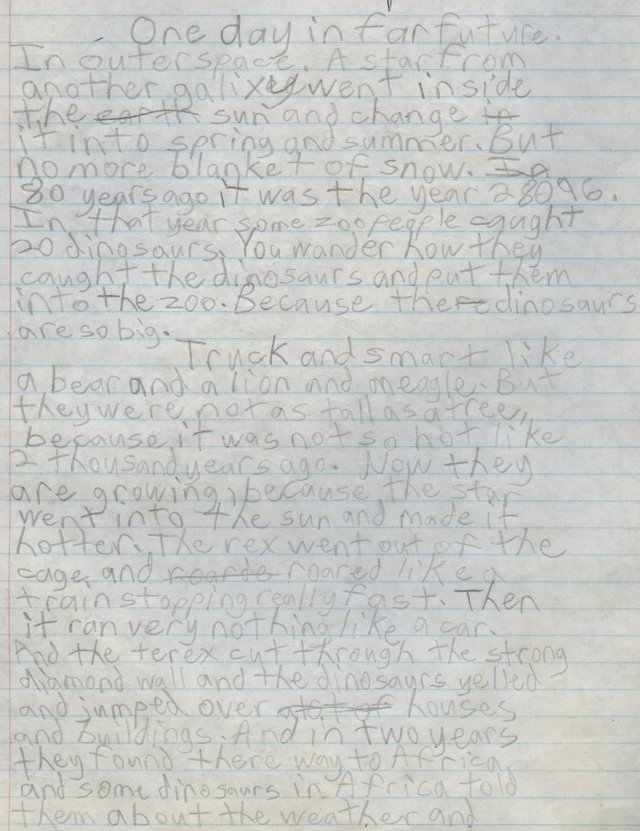 One day in far future.
In outer space. A star from
another galixey went inside
the earth sun and change in
it into spring and summer. But
no more blanket of snow. In
80 years ago it was the year 28096.
In that year some zoo people caught
20 dinosaurs. You wander how they
caught the dinosaurs and put them
into the zoo. Because there dinosaurs
are so big.
Truck and smart like
a bear and a lion and an eagle. But
they were not as tall as a tree,
because it was not so hot like
2 thousand years ago. Now they
are growing, because the star
went into the sun and made it
hotter. The rex went out of the
cage, and roarde roared like a
train stopping really fast. Then
it ran very nothing like a car.
And the terex cut through the strong
diamond wall and the dinosaurs yelled
and jumped over alot of houses
and buildings. And in two years
they found there way to Africa
and some dinosaurs in Africa told
them about the weather and